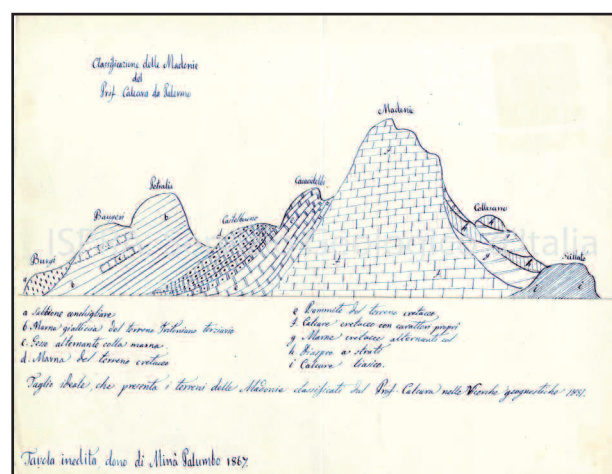 Classificazione delle Madonie
del
Prof. Calcara da Palermo
Madonie
Petralia
Caccidelli
Bausesi
Castelbuono
Collesano
Burgi
a Sabbione conchigliare
b. Marna gialliccia del terreno Tortoniano terziario
c. Gesso alternante colla marna
d. Marna del terreno cretaceo
e Nummiti del terreno cretaceo,
f. Calcare cretaceo con caratteri propri
g Marne cretacee alternanti col
h. Diaspro a strati
i Calcare liasico.
Taglio ideale, che presenta i terreni delle Madonie classificati dal Prof. Calcara nelle Ricerche geognostiche 1851.
Tavola inedita, dono di Minà Palumbo 1867.